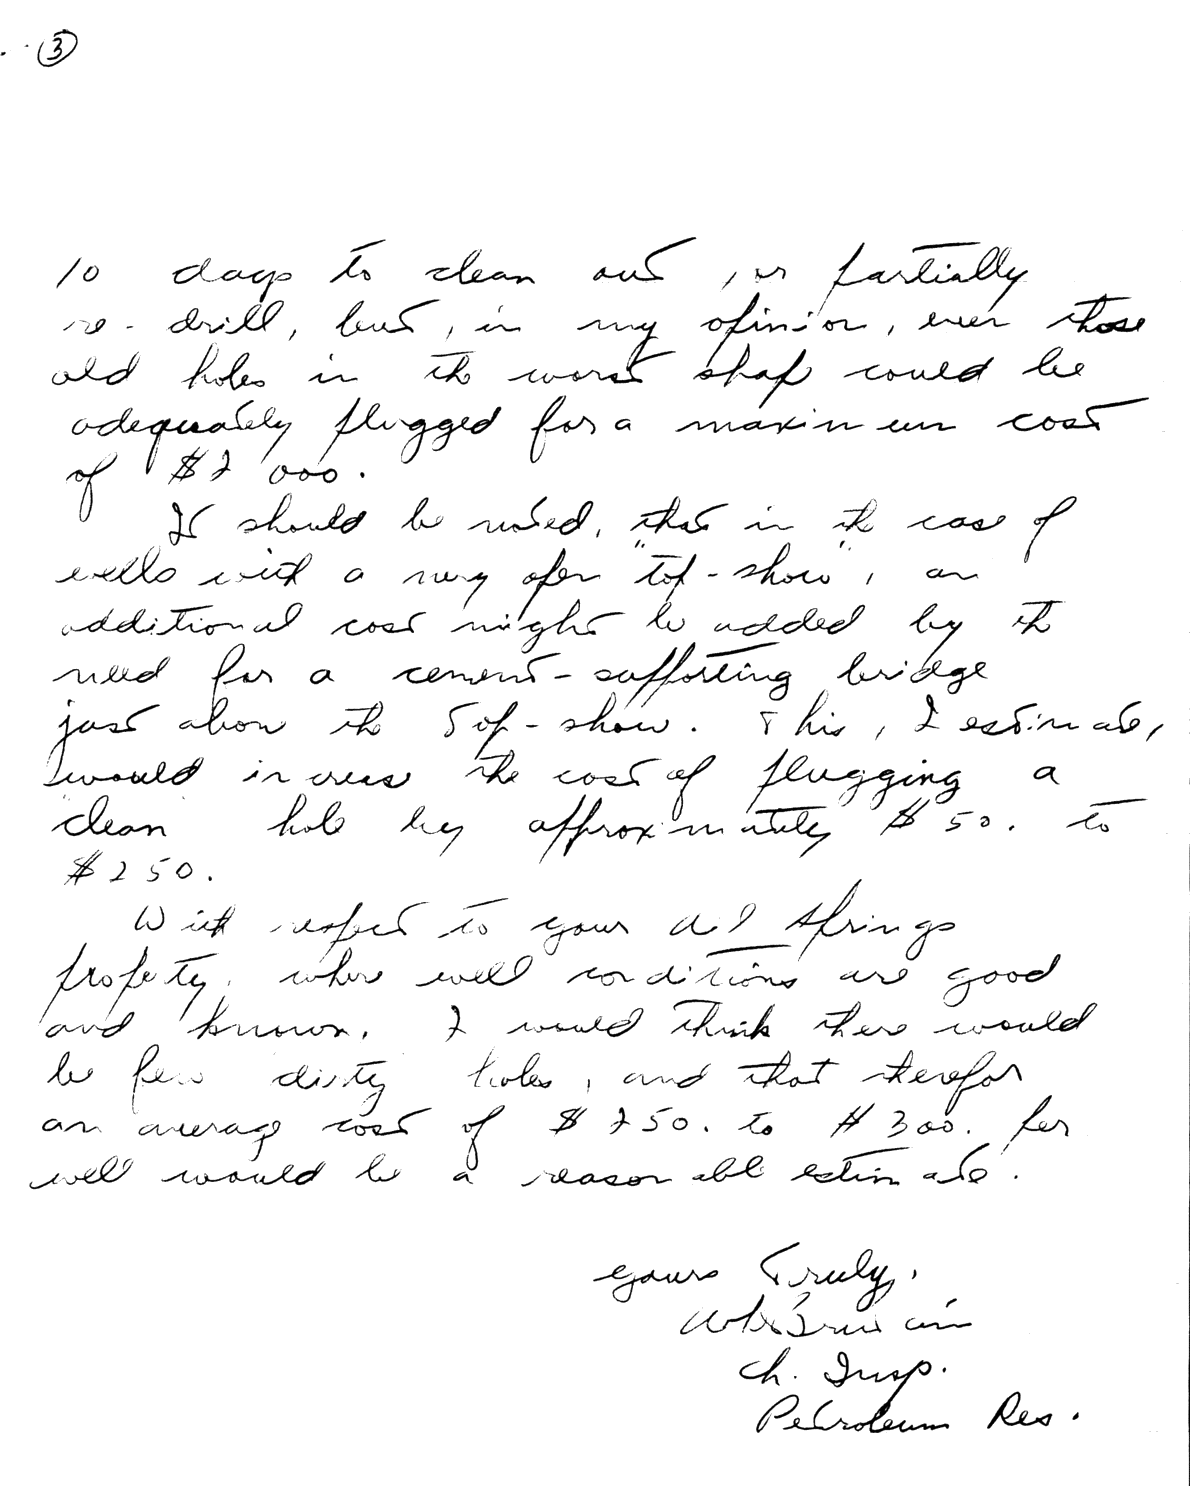 ③
10 days to clean out, or partially
re-drill, but, in my opinion, even those
old holes in the worst shape could be
adequately plugged for a maximum cost
of $2 000.
It should be noted, that in the case of
wells with a very open "top-show", an
additional cost might be added by the
need for a cement-supporting bridge
just above the top-show. This, I estimate,
would increase the cost of plugging a
clean hole by approximately $50. to
$250.
With respect to your Oil Springs
property, where well conditions are good
and known, I would think there would
be few dirty holes, and that therefor
an average cost of $250. to $300. per
well would be a reasonable estimate.
Yours Truly,
Ch. Insp.
Petroleum Res.